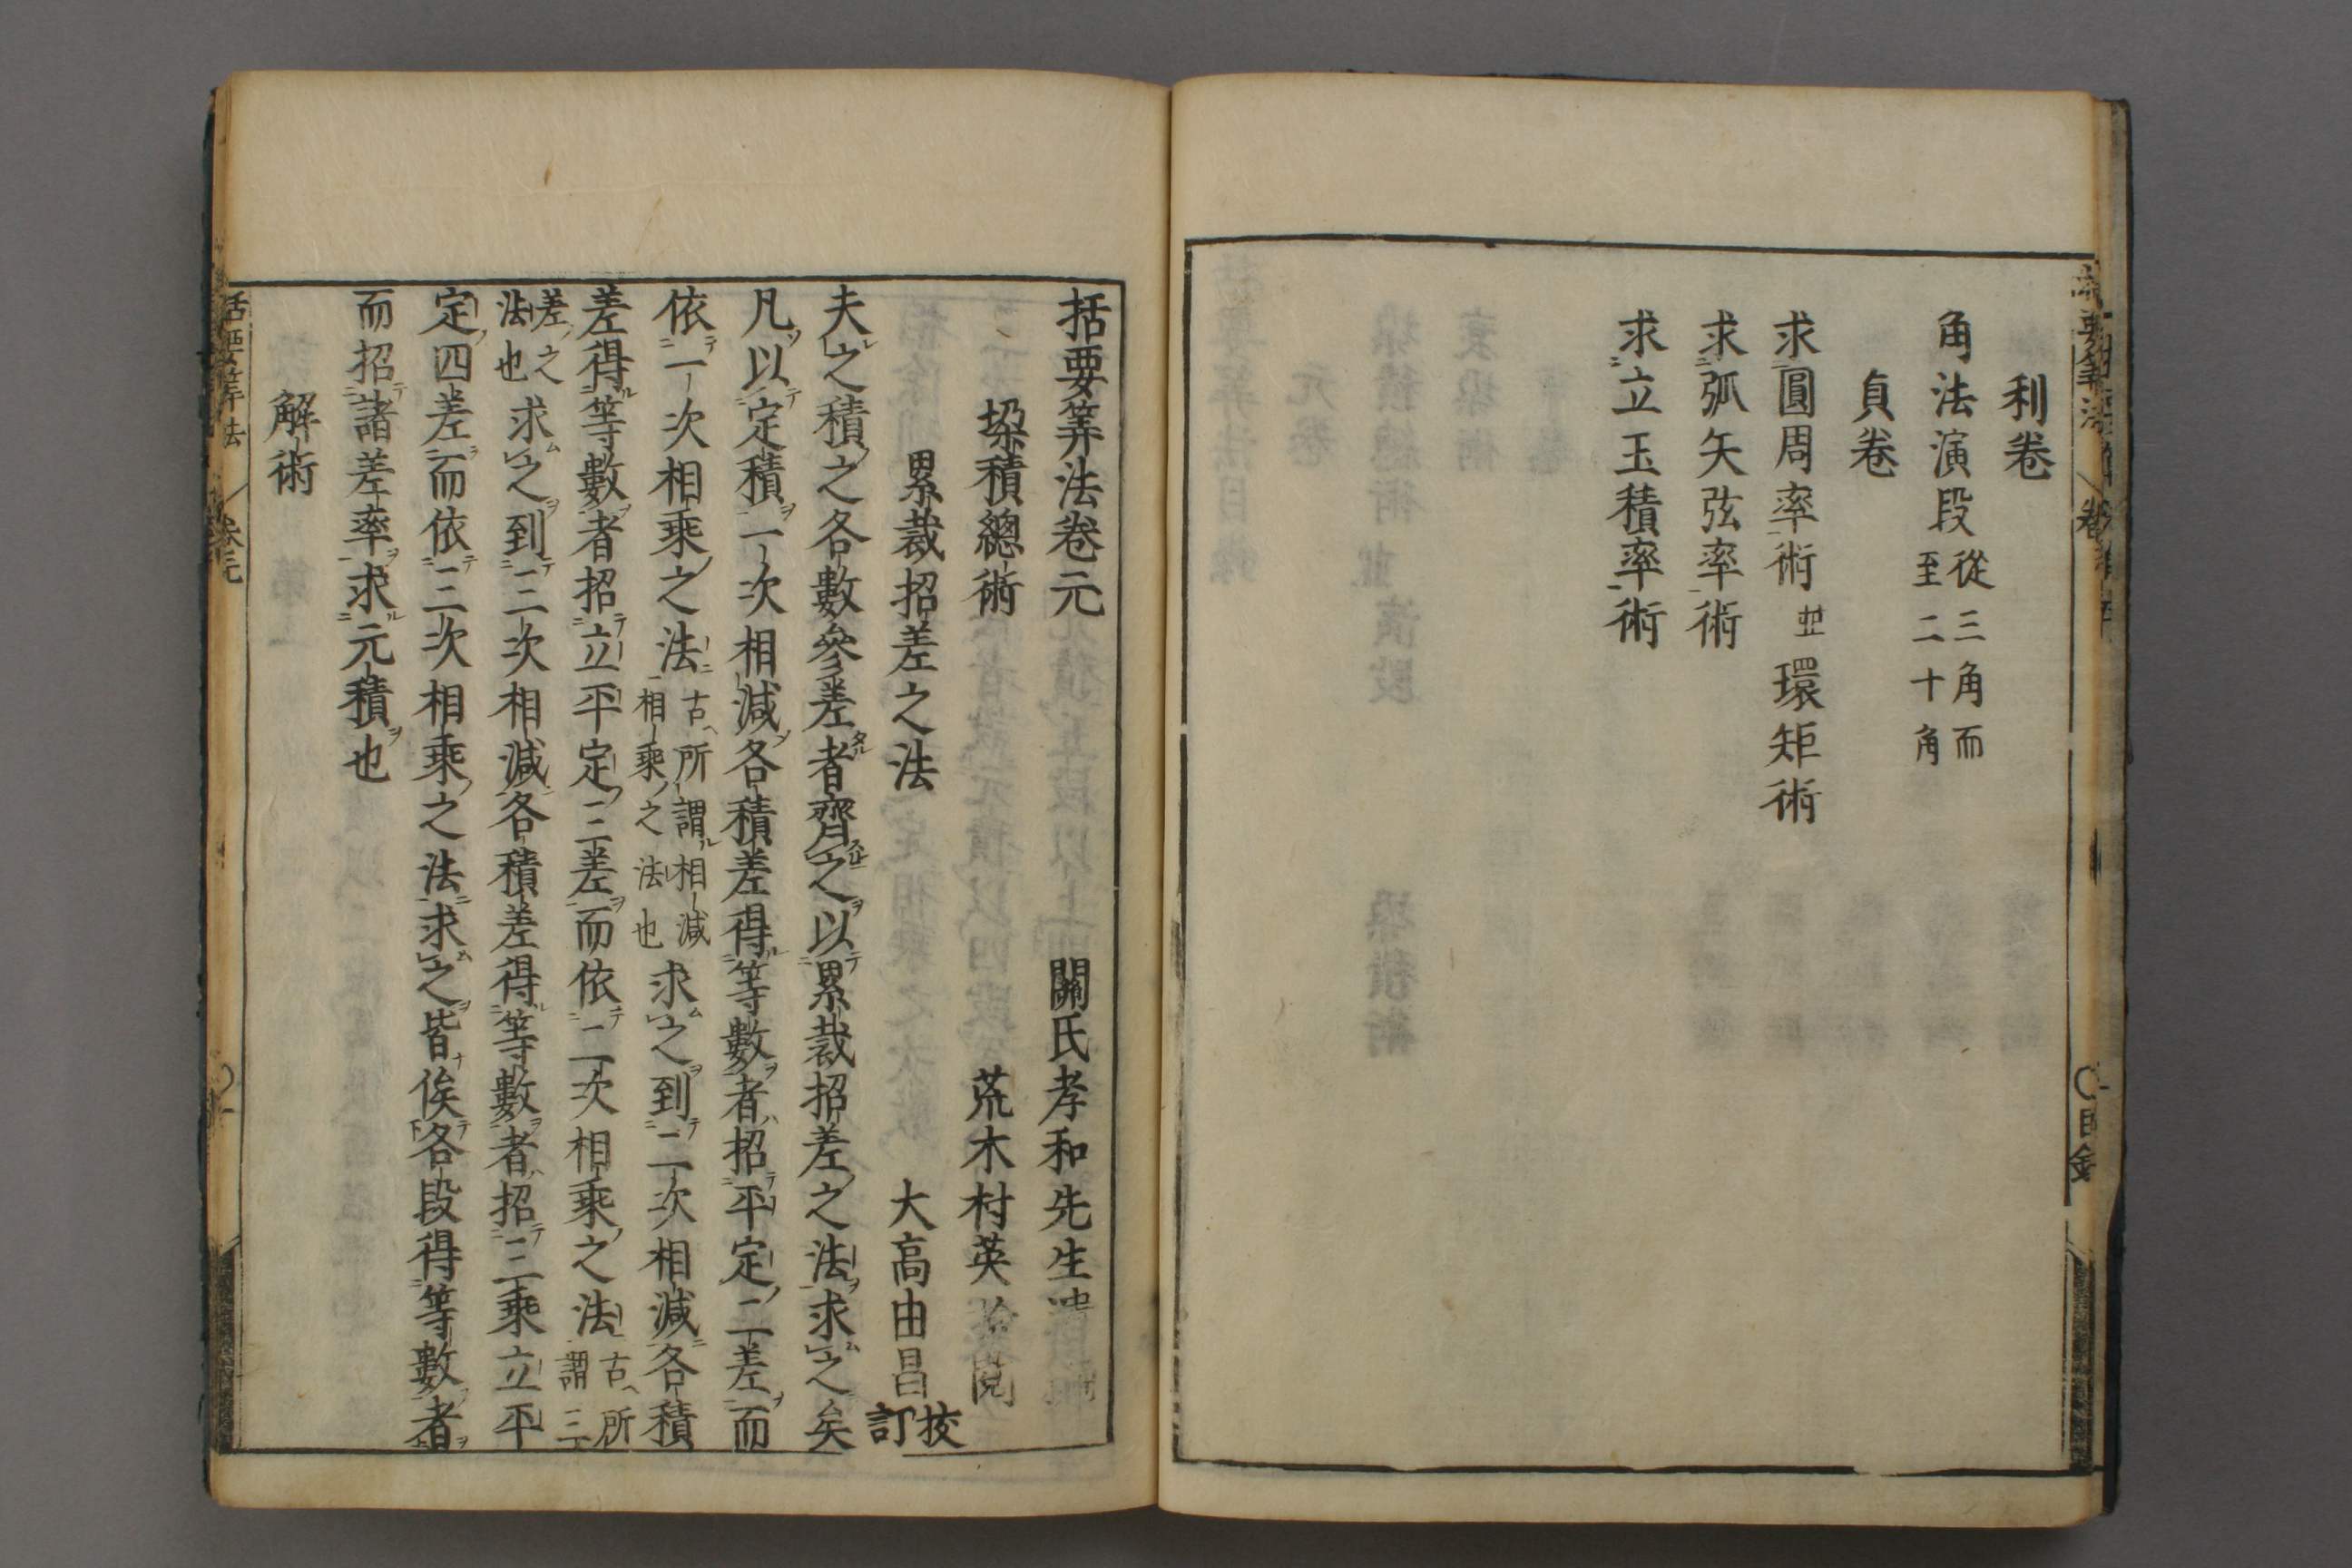 利卷
角法演段 從三角而至二十角
貞卷
求圓周率術 並 環矩術
求弧矢弦率術
求立玉積率術
括要筭法卷元 關氏孝和先生遺
垜積總術 荒木村英 閲
累裁招差之法 大高由昌 挍訂
夫之積之各數參差者齊之以累裁招差之法求之矣
凡以定積一次相減各積差得等數者招平定二差而
依一次相乘之法 古所謂相減相乘之法也 求之到二次相減各積
差得等數者招立平定三差而依二次相乘之法 古所謂三
差之法也 求之到三次相減各積差得等數者招三乘立平
定四差而依三次相乘之法求之皆俟各段得等數者
而招諸差率求元積也
解術
括要筭法 卷元